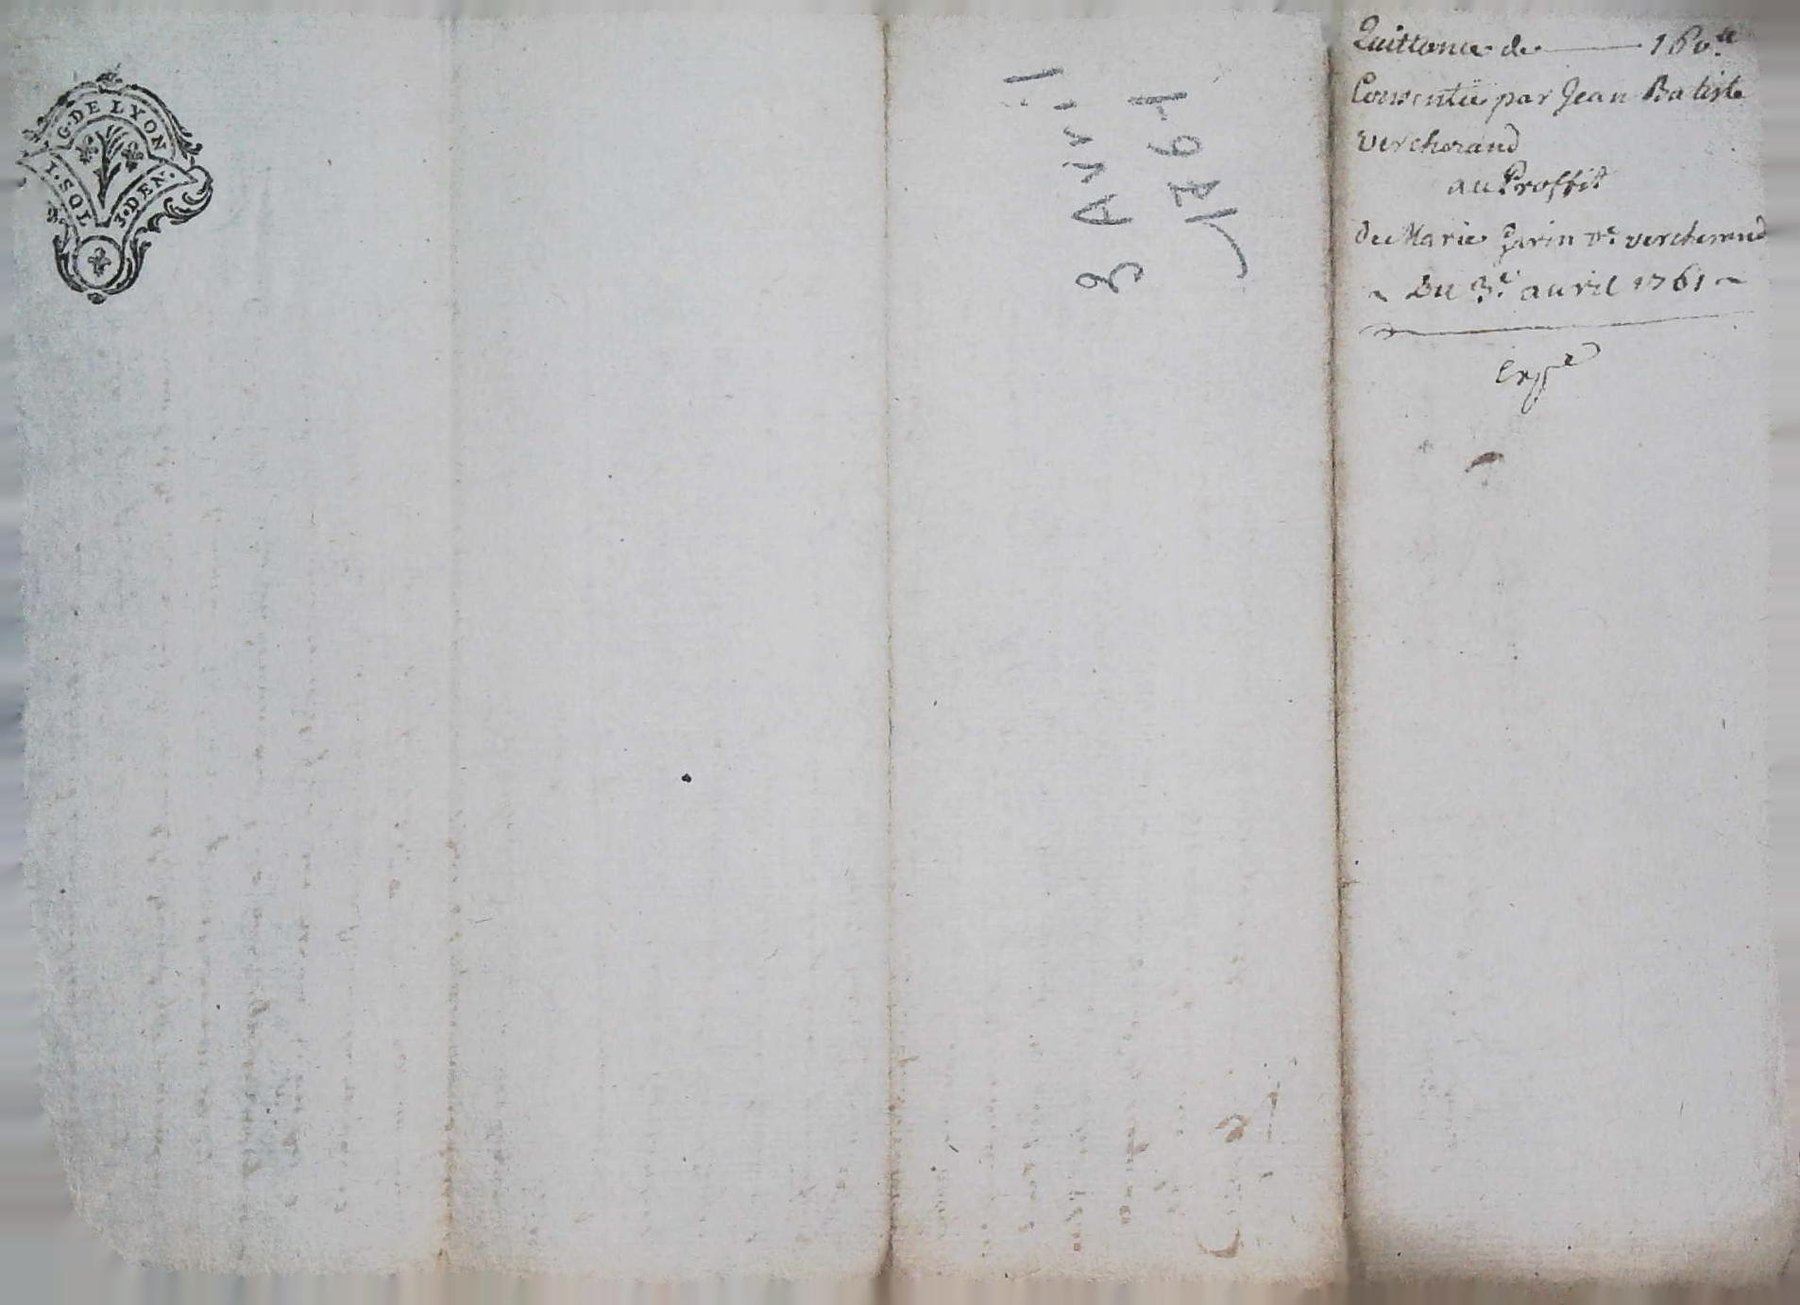 G. DE LYON
1. SOL 3. DEN.
3 Avril
1761
Quittance de ——— 160.tt
Consentüe par Jean Batiste
Vercherand
au Proffit
de Marie Jarin ve. vercherand
~ Du 3.e avril 1761 ~